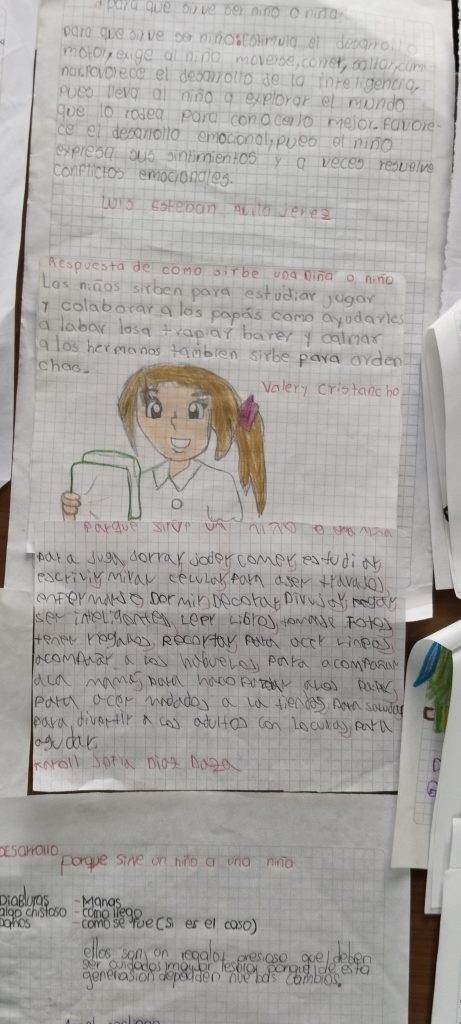 para que sirve ser niño o niña
para que sirve ser niño: estimula el desarrollo
motor, exige al niño moverse, correr, saltar, cami
nar. Favorece el desarrollo de la inteligencia,
pues lleva al niño a explorar el mundo
que lo rodea para conocerlo mejor. Favore-
ce el desarrollo emocional, pues el niño
expresa sus sintimientos y a veces resuelve
conflictos emocionales.
Luis Esteban Avila Jerez
Respuesta de como sirbe una niña o niño
Los niños sirben para estudiar jugar
y colaborar a los papás como ayudarles
a labar losa trapiar barer y calmar
a los hermanos tambien sirbe para orden
char.
Valery Cristancho
parque sirve un niño o una niña
para jugar correr joder comer estudiar
escrivir mirar celular para aser travajos
enfermarse Dormir Decorar Divujar
ser inteligentes Leer Libros tomarse Fotos
tener regalos, Recortar para acer
acompañar a los habuelos, para acompañar
a la mamá, para a los
para acer madados a la tienda, para saludar
para divertir a los adultos con locuras, para
ayudar.
Karoll Sofia Diaz Daza
DESARROLLO
porque sirve un niño a una niña
Diabluras - Mañas
algo chistoso - como llego
Daños - como se fue (si es el caso)
ellos son un regalo presioso que deben
ser cuidados porque de esta
generasion dependen nuebas cambios.